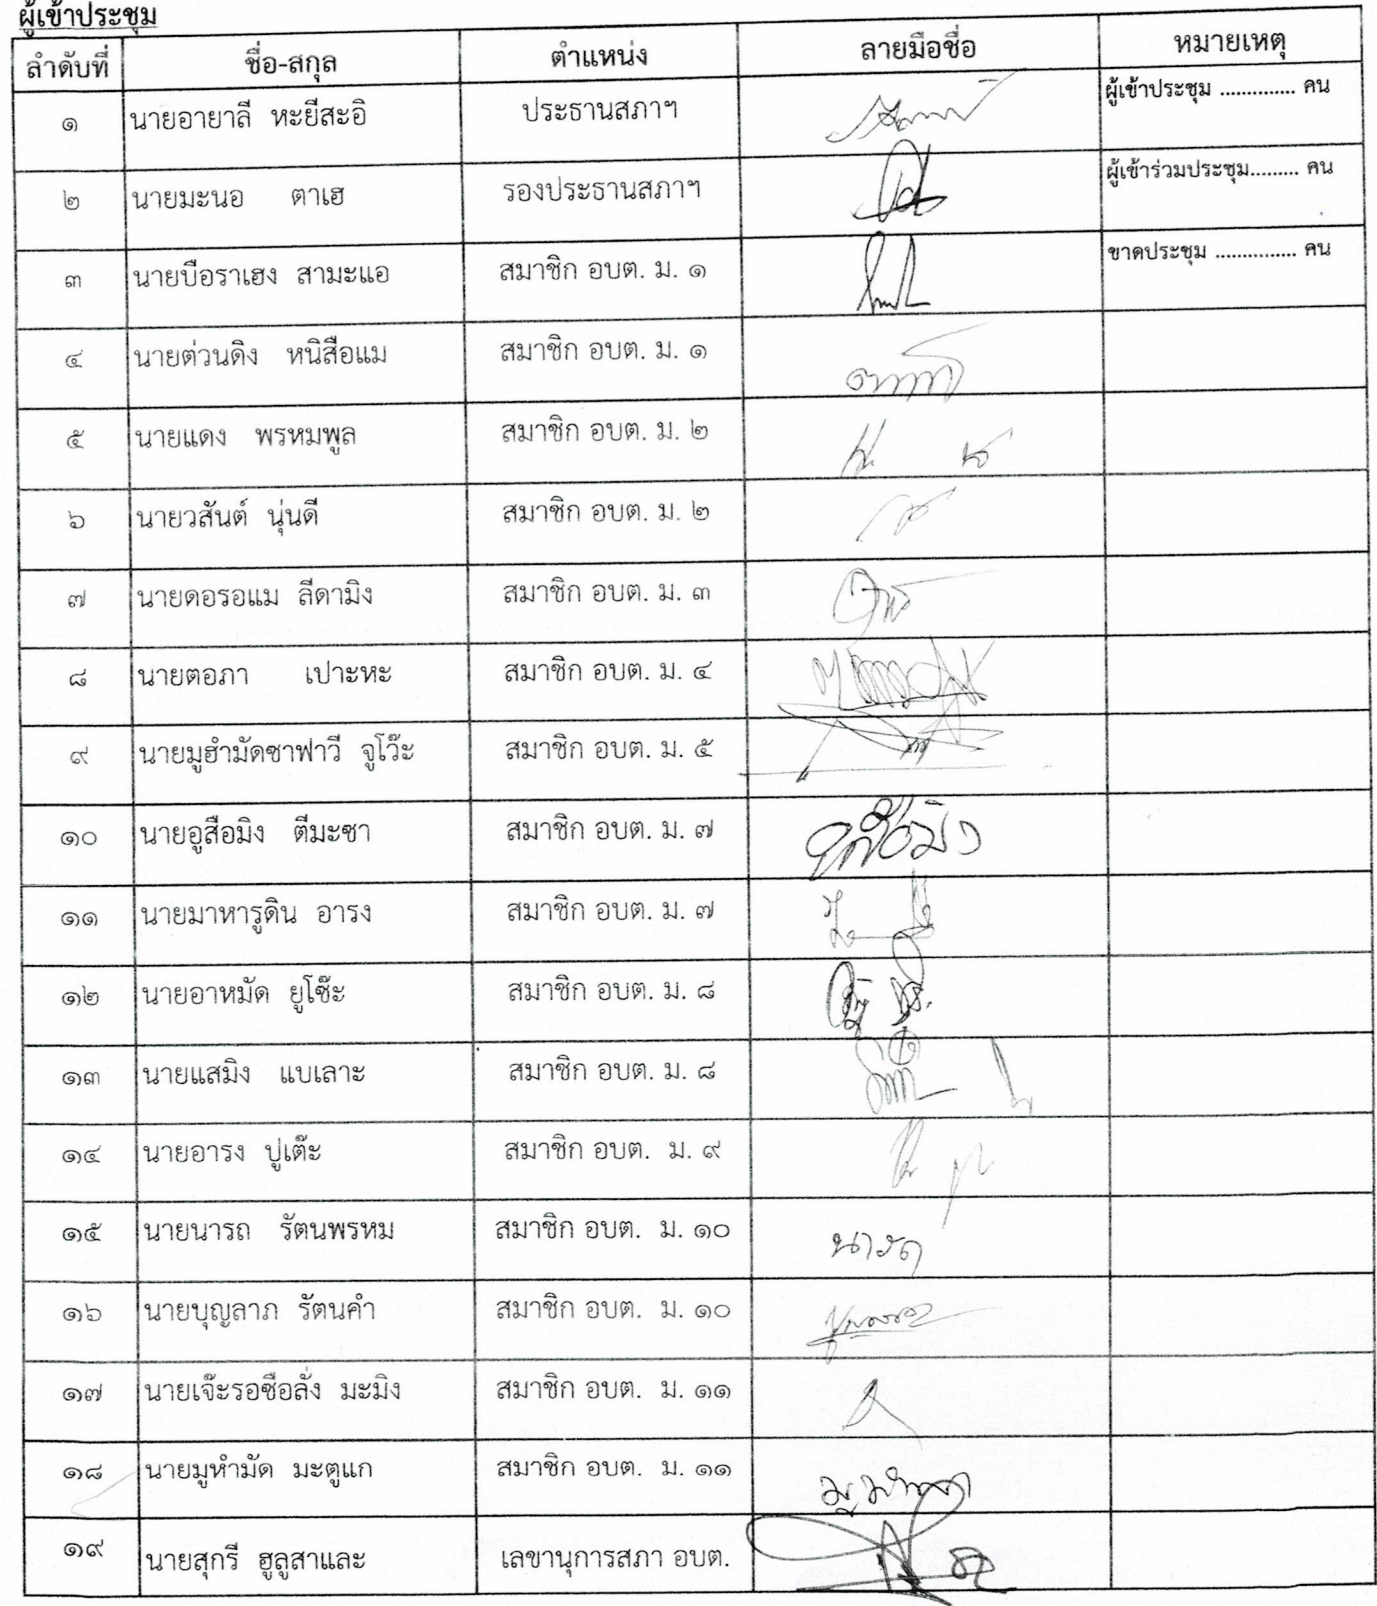 ผู้เข้าประชุม
ลำดับที่ ชื่อ-สกุล ตำแหน่ง ลายมือชื่อ หมายเหตุ
๑ นายอายาลี หะยีสะอิ ประธานสภาฯ ผู้เข้าประชุม .............. คน
๒ นายมะนอ ตาเฮ รองประธานสภาฯ ผู้เข้าร่วมประชุม......... คน
๓ นายบือราเฮง สามะแอ สมาชิก อบต. ม. ๑ ขาดประชุม ............... คน
๔ นายต่วนดิง หนิสือแม สมาชิก อบต. ม. ๑
๕ นายแดง พรหมพูล สมาชิก อบต. ม. ๒
๖ นายวสันต์ นุ่นดี สมาชิก อบต. ม. ๒
๗ นายดอรอแม ลีดามิง สมาชิก อบต. ม. ๓
๘ นายตอภา เปาะหะ สมาชิก อบต. ม. ๔
๙ นายมูฮำมัดซาฟาวี จูโว๊ะ สมาชิก อบต. ม. ๕
๑๐ นายอูสือมิง ตีมะซา สมาชิก อบต. ม. ๗
๑๑ นายมาหารูดิน อารง สมาชิก อบต. ม. ๗
๑๒ นายอาหมัด ยูโซ๊ะ สมาชิก อบต. ม. ๘
๑๓ นายแสมิง แบเลาะ สมาชิก อบต. ม. ๘
๑๔ นายอารง ปูเต๊ะ สมาชิก อบต. ม. ๙
๑๕ นายนารถ รัตนพรหม สมาชิก อบต. ม. ๑๐ นารถ
๑๖ นายบุญลาภ รัตนคำ สมาชิก อบต. ม. ๑๐
๑๗ นายเจ๊ะรอซือลั่ง มะมิง สมาชิก อบต. ม. ๑๑
๑๘ นายมูหำมัด มะตูแก สมาชิก อบต. ม. ๑๑
๑๙ นายสุกรี ฮูลูสาและ เลขานุการสภา อบต.